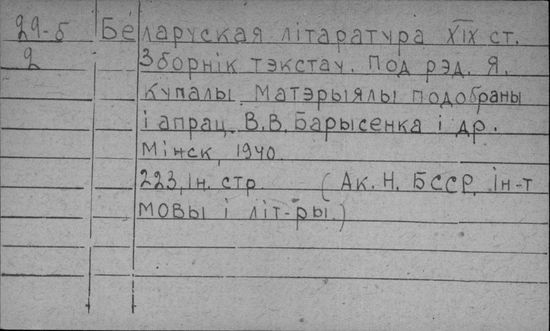 29-б Беларуская літаратура XIX ст.
2 Зборнік тэкстаў. Под рэд. Я.
Купалы. Матэрыялы подобраны
і апрац. В.В. Барысенка і др.
Мінск, 1940.
223, ін. стр. (Ак. Н. БССР. Ін-т
мовы і літ-ры.)